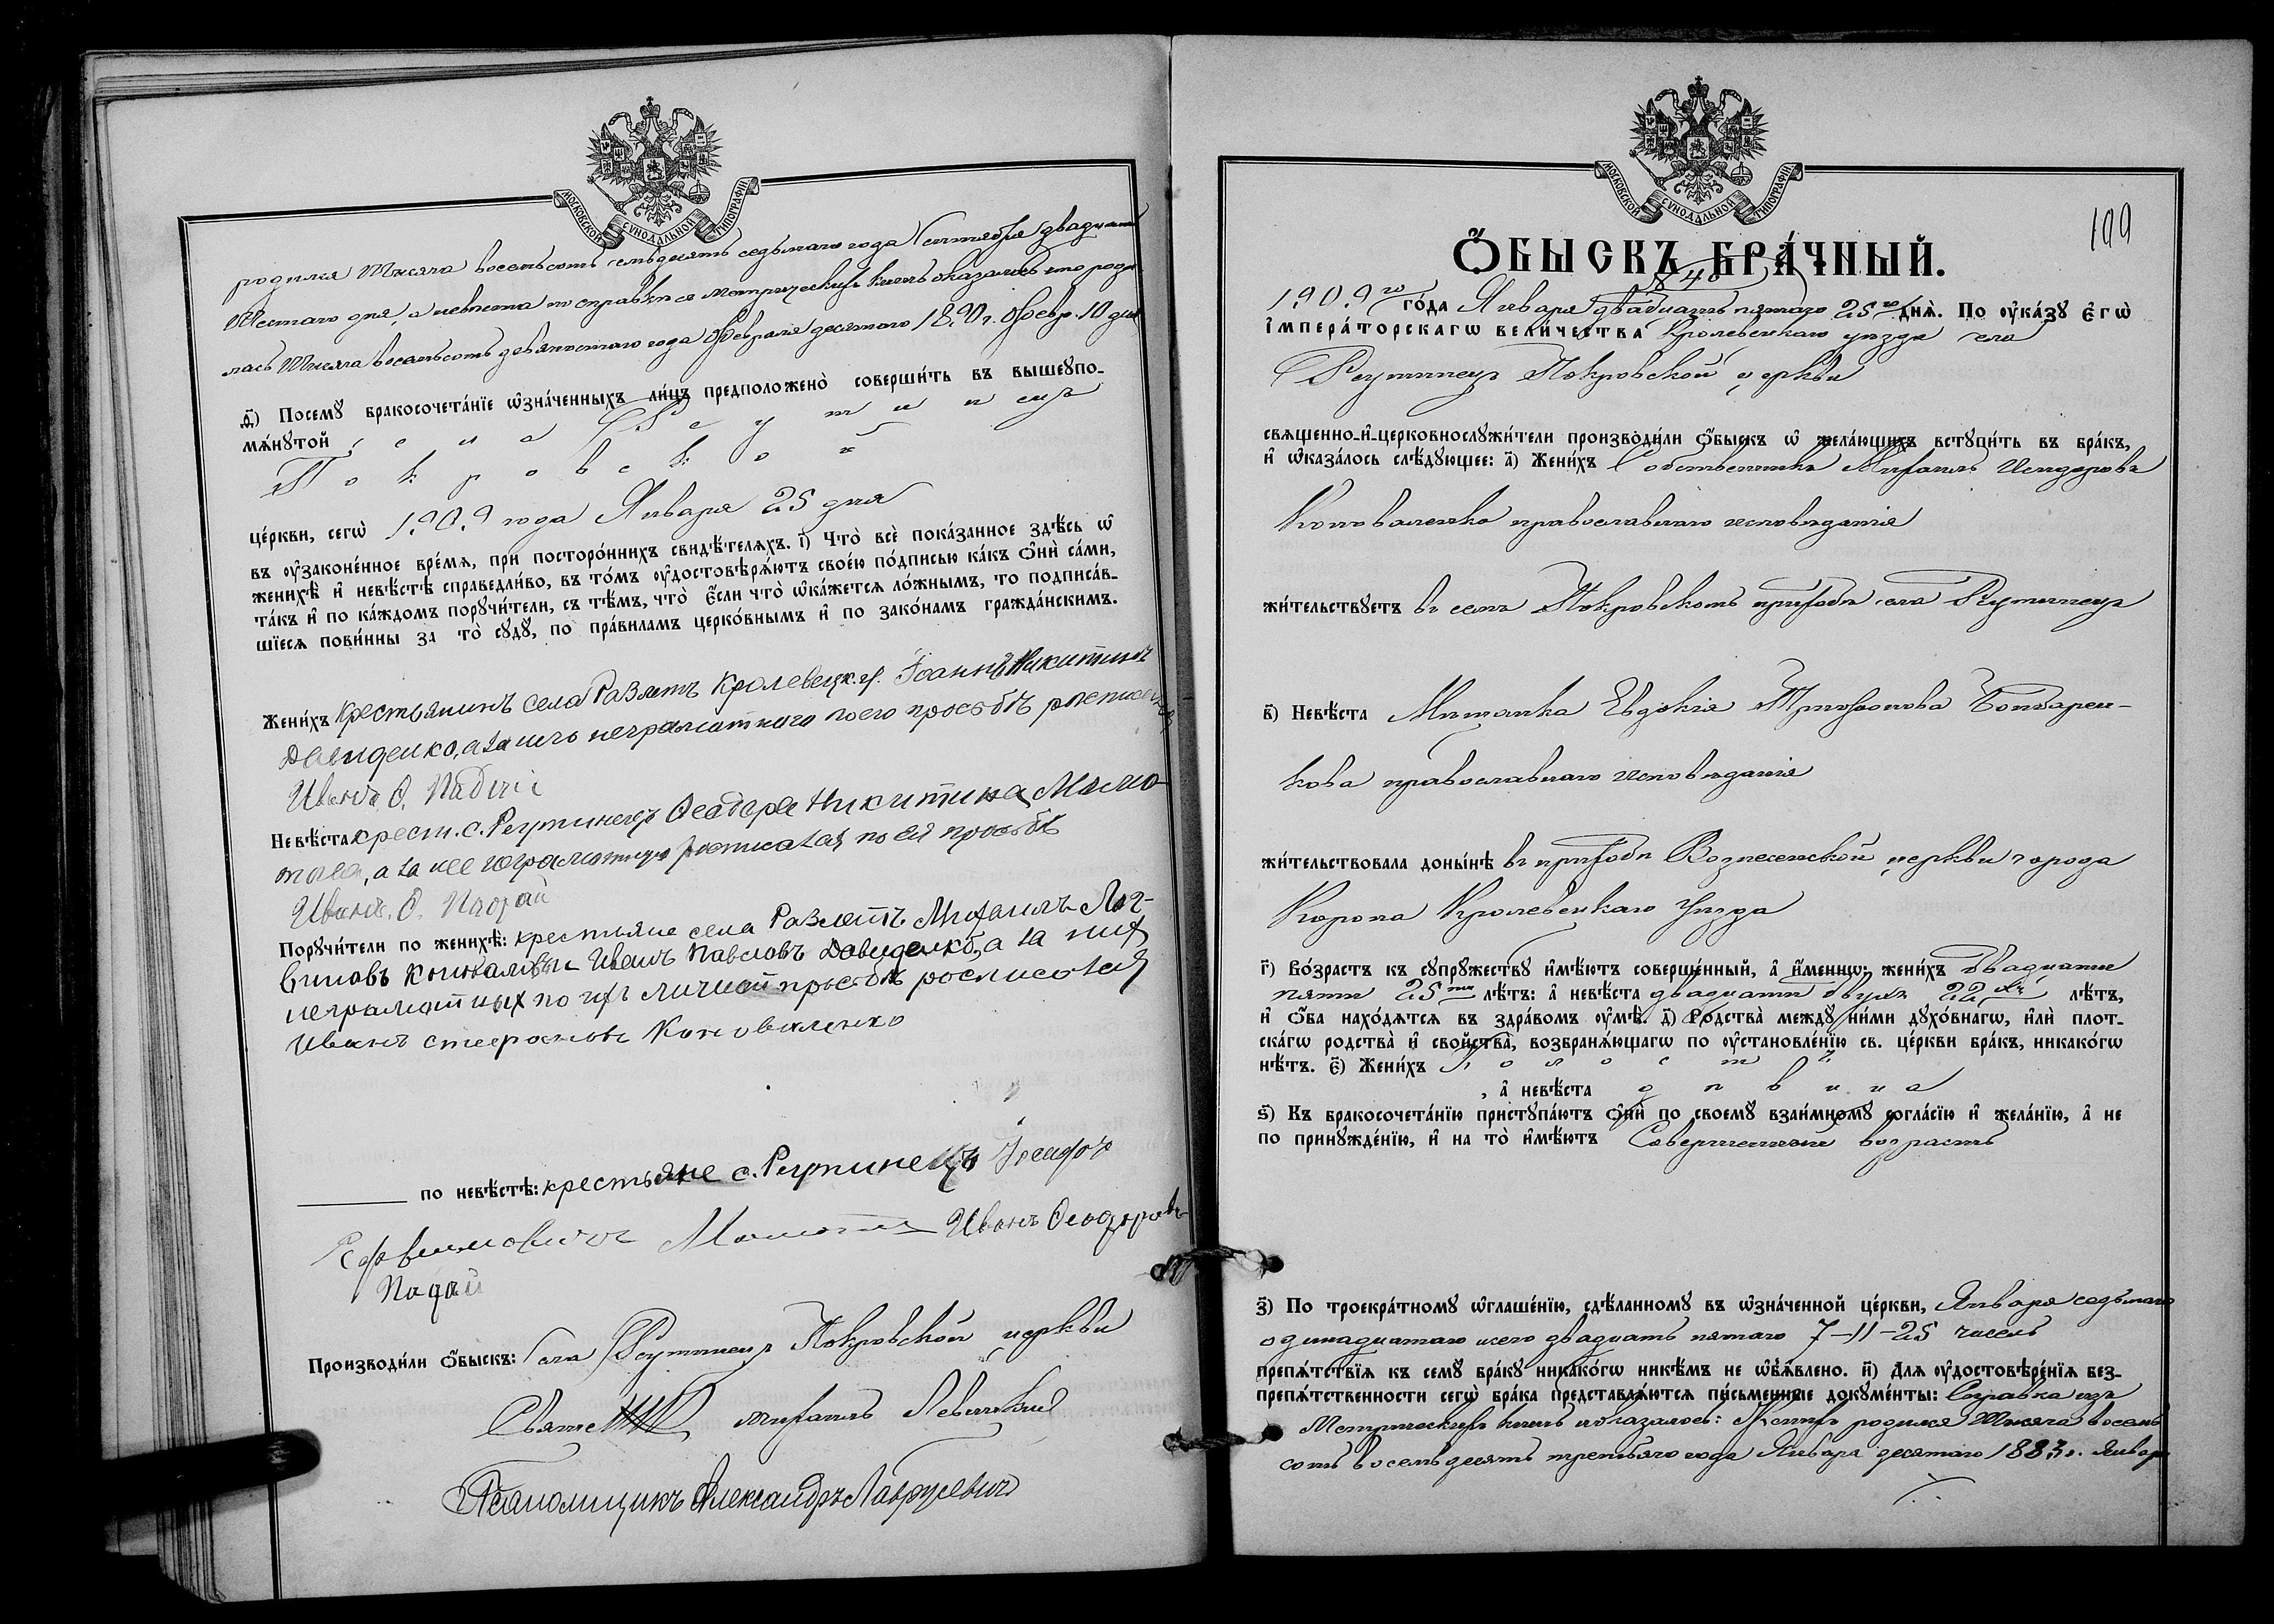 МОСКОВСКОЙ СѴНОДАЛЬНОЙ ТИПОГРАФІИ.
родился Тысяча восемьсотъ семьдесятъ седьмаго года Сентября двадцать
Шестаго дня, а невѣста по справкѣ съ метрическихъ книгъ оказалось что роди-
лась Тысяча восемьсотъ девяностаго года Февраля десятаго 1890 г. Февр. 10 дня
д҃) Посемꙋ бракосочета́нїе ѡзна́ченныхъ ли́цъ предположено̀ соверши́ть въ вышеꙋпо-
мѧ́нꙋтой села Реутинецъ
Покровской
це́ркви, сегѡ̀ 1909 года Января 25 дня
въ оу҆законе́нное вре́мѧ, при посторо́ннихъ свидѣ́телѧхъ. і҃) Что̀ всѐ пока́занное здѣ́сь ѡ҆
женихѣ̀ и҆ невѣ́стѣ справедли́во, въ то́мъ оу҆достовѣрѧ́ютъ свое́ю по́дписью ка́къ ѻ҆нѝ са́ми,
та́къ и҆ по ка́ждомъ порꙋчи́тели, съ тѣ́мъ, что̀ є҆́сли что̀ ѡ҆ка́жетсѧ ло́жнымъ, то подписа́в-
шїесѧ пови́нны за то̀ сꙋдꙋ̀, по пра́виламъ церко́внымъ и҆ по зако́намъ гражда́нскимъ.
Жени́хъ Крестьянинъ села Разлетъ Кролевецк. у. Іоаннъ Никитинъ
Давиденко, а за него неграмотнаго по его просьбѣ росписался
Иванъ Ѳ. Падій
Невѣ́ста крест. с. Реутинецъ Ѳеодора Никитина Мамо-
това, а за нее неграмотную росписался по ея просьбѣ
Иванъ. Ѳ.
Порꙋчи́тели по женихѣ̀: крестьяне села Разлетъ Михаилъ Лог-
виновъ Иванъ Павловъ Давиденко, а за нихъ
неграмотныхъ по ихъ личной просьбѣ росписался
Иванъ Стефановъ Коноваленко
по невѣ́стѣ: крестьяне с. Реутинецъ
Иванъ Ѳеодоровъ
Производи́ли ѻ҆́быскъ: Села Реутинецъ Покровской церкви
Михаилъ Левицкій
Псаломщикъ Александръ Лаврусевичъ
МОСКОВСКОЙ СѴНОДАЛЬНОЙ ТИПОГРАФІИ.
199
Ѻ҆́БЫСКЪ БРА́ЧНЫЙ.
№ 40
1909го го́да Января двадцать пятаго 25го днѧ̀. По оу҆ка́зꙋ є҆гѡ̀
і҆мпера́торскагѡ вели́чества Кролевецкаго уѣзда села
Реутинецъ Покровской церкви
свѧщенно-и҆-церковнослꙋжи́тели производи́ли ѻ҆́быскъ ѡ҆ жела́ющихъ встꙋпи́ть въ бра́къ,
и҆ ѡ҆каза́лось слѣ́дꙋющее: а҃) Жени́хъ Собственникъ Михаилъ Исидоровъ
Коноваленко православнаго исповѣданія
жи́тельствꙋетъ въ семъ Покровскомъ приходѣ села Реутинецъ
в҃) Невѣ́ста Мѣщанка Евдокія Трифонова Бондарен-
кова православнаго исповѣданія
жи́тельствовала доны́нѣ въ приходѣ Вознесенской церкви города
Коропа Кролевецкаго уѣзда
г҃) Во́зрастъ къ сꙋпрꙋ́жествꙋ и҆мѣ́ютъ соверше́нный, а҆ и҆́меннѡ: жени́хъ двадцати
пяти 25ти лѣ́тъ: а҆ невѣ́ста двадцати двухъ 22хъ лѣ́тъ,
и҆ ѻ҆́ба нахо́дѧтсѧ въ здра́вомъ оу҆мѣ̀. д҃) Родства̀ междꙋ ни́ми дꙋхо́внагѡ, и҆лѝ плот-
ска́гѡ родства̀ и҆ свойства̀, возбранѧ́ющагѡ по оу҆становле́нїю св. це́ркви бра́къ, никако́гѡ
нѣ́тъ. є҃) Жени́хъ холостъ
, а҆ невѣ́ста дѣвица
ѕ҃) Къ бракосочета́нїю пристꙋпа́ютъ ѻ҆нѝ по своемꙋ̀ взаи́мномꙋ согла́сїю и҆ жела́нїю, а҆ не
по принꙋжде́нїю, и҆ на то̀ и҆мѣ́ютъ Совершенный возрастъ
з҃) По троекра́тномꙋ ѡ҆глаше́нїю, сдѣ́ланномꙋ въ ѡ҆зна́ченной це́ркви, Января седьмаго
одинадцатаго и сего двадцать пятаго 7–11–25 чиселъ
препѧ́тствїѧ къ семꙋ̀ бра́кꙋ никако́гѡ никѣ́мъ не ѡ҆б̾ѧ́влено. и҃) Длѧ оу҆достовѣре́нїѧ без-
препѧ́тственности сегѡ̀ бра́ка представлѧ́ютсѧ пи́сьменные докꙋме́нты: Справка изъ
Метрическихъ книгъ показалось: Женихъ родился Тысяча восемь
сотъ восемьдесятъ третьяго года Января десятаго 1883 г. Январ